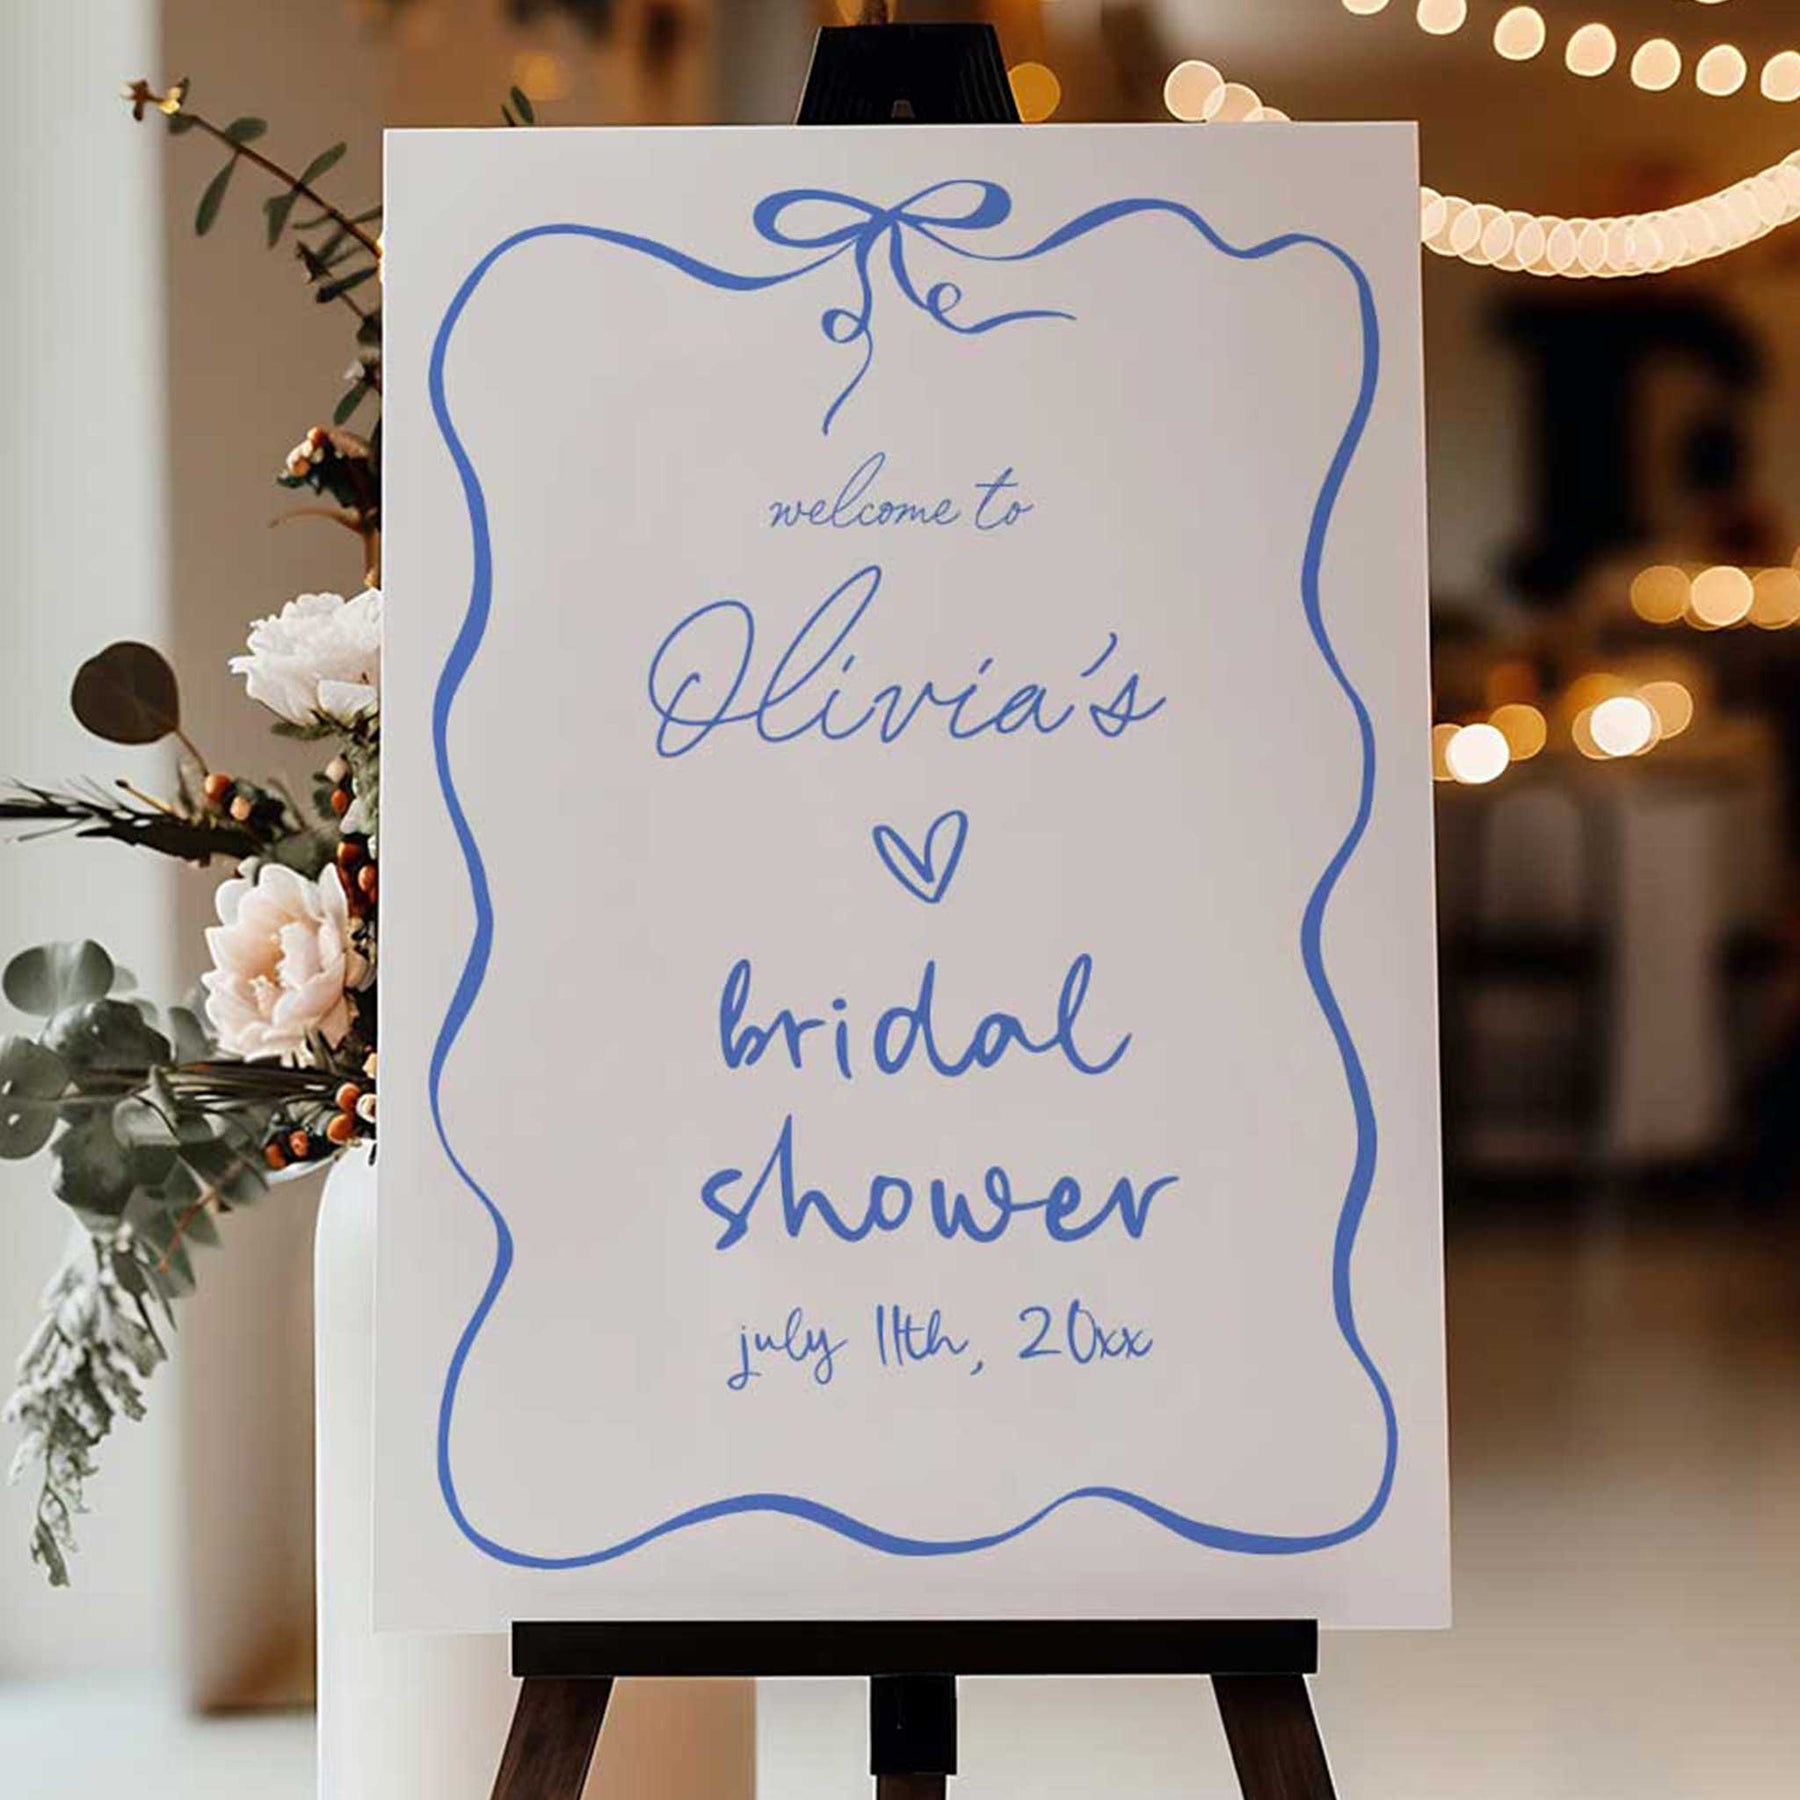 welcome to
Olivia's
bridal
shower
july 11th, 20xx